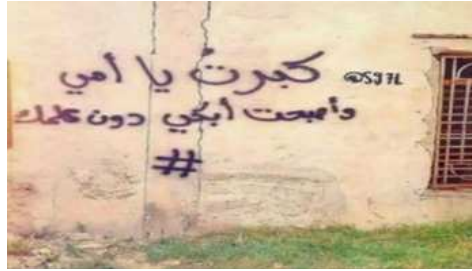 كبرتُ يا أمي
@SJ7L
وأصبحت أبكي دون علمك
#